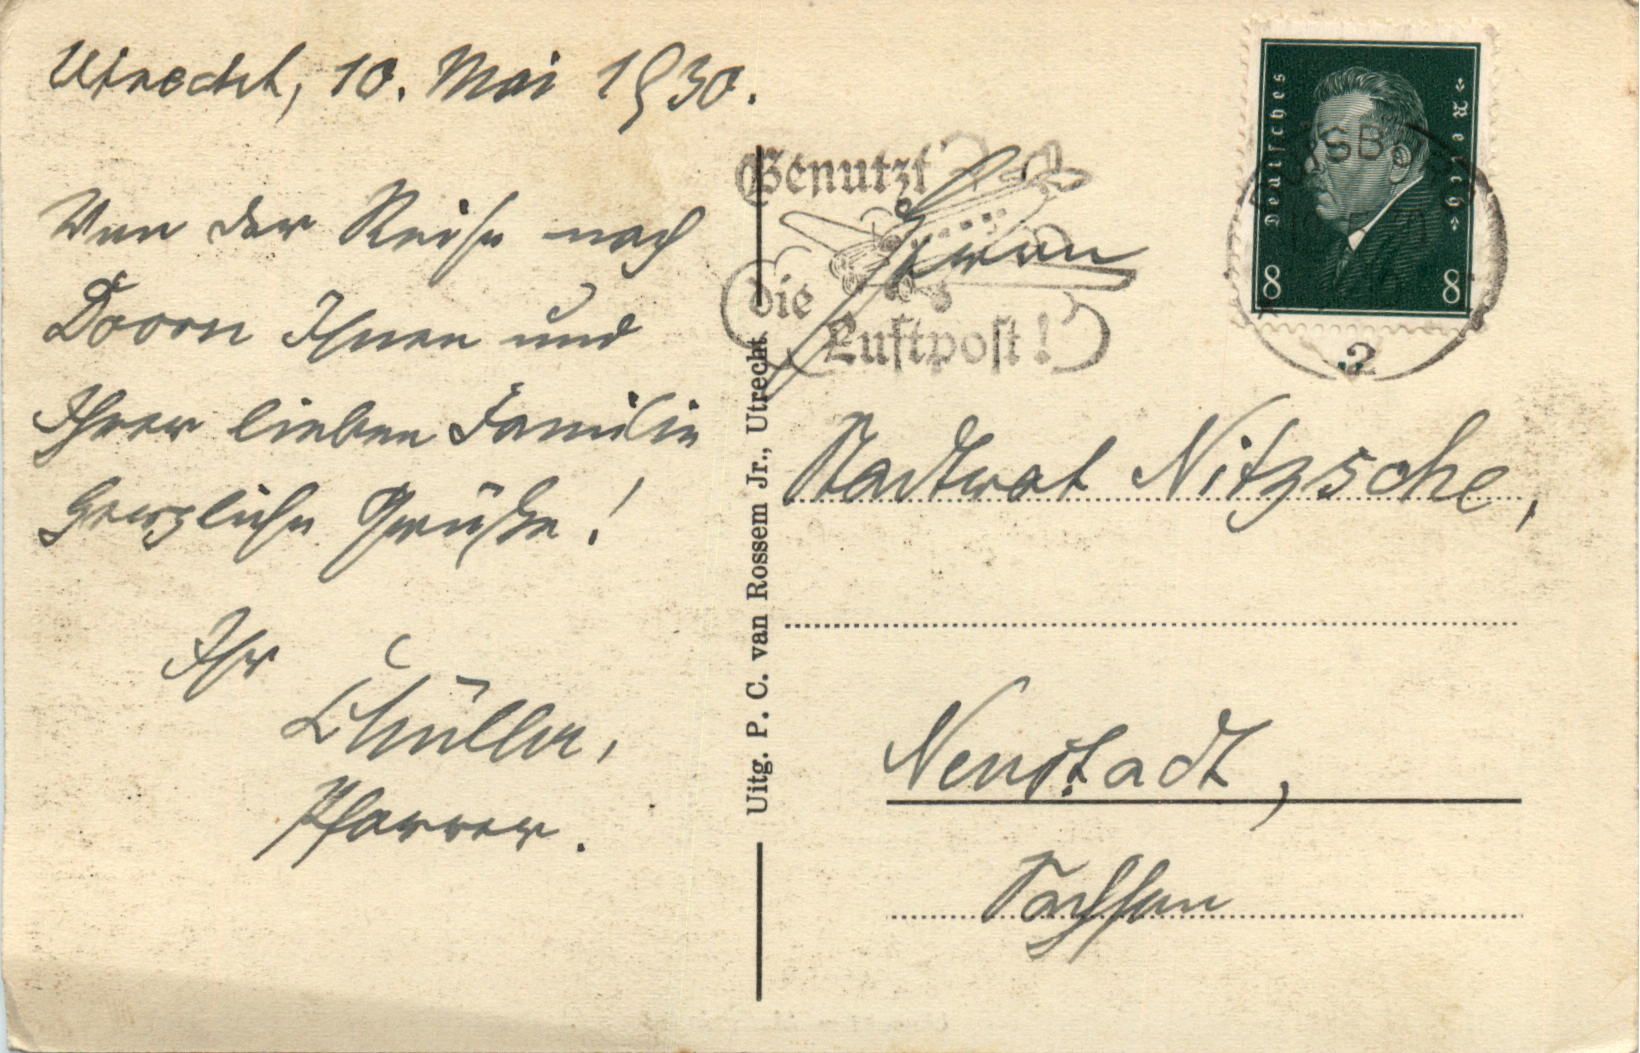 Utrecht, 10. Mai 1930.
Von der Reise nach
Doorn Ihnen und
Ihrer lieben Familie
herzliche Grüße!
Ihr
Pfarrer.
Uitg. P. C. van Rossem Jr., Utrecht
Benutzt
die
Luftpost!
Deutsches Reich
8 8
2
Herrn
Stadtrat Nitzsche,
Neustadt,
Sachsen